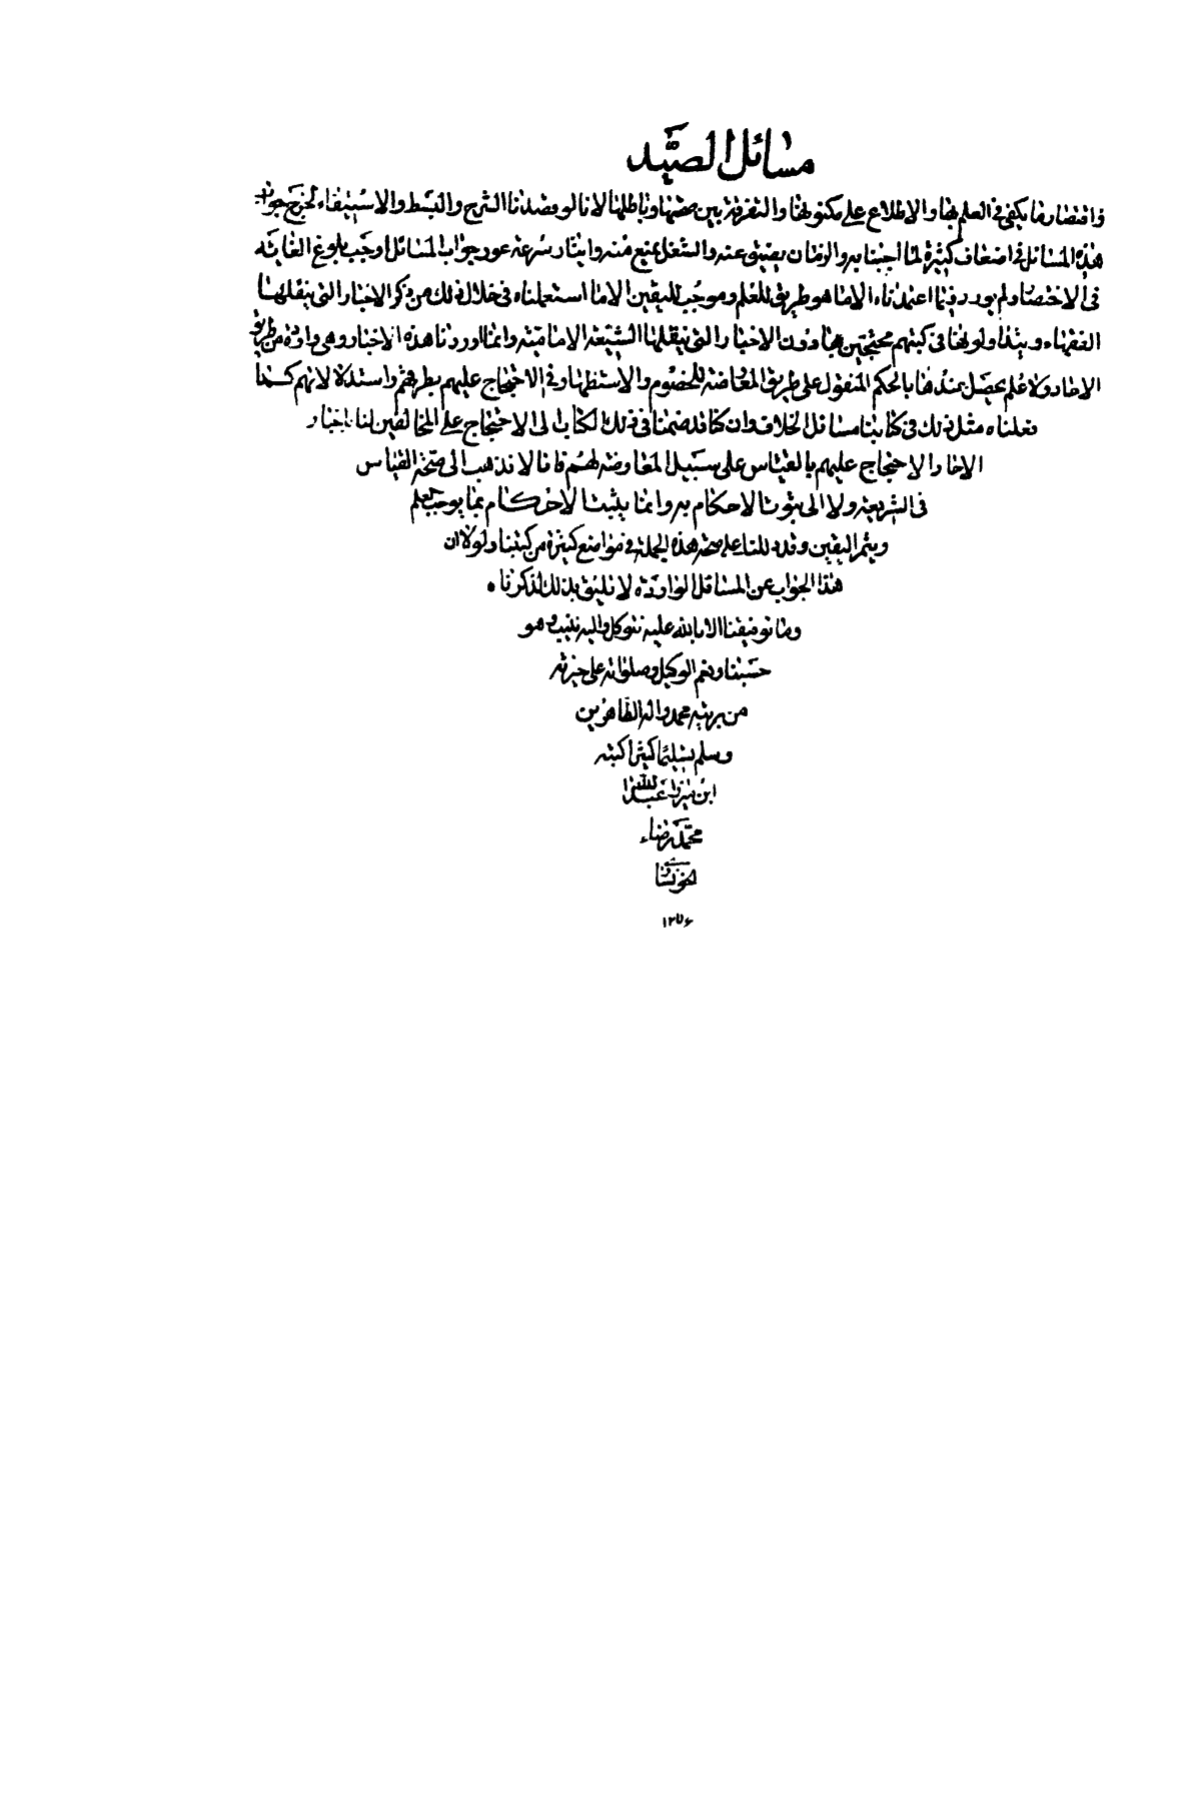 مسائل الصيد
واقتصار ما يكفى فى العلم بها والاطلاع على مكنونها والتفرقة بين صحتها وباطلها لانا لو قصدنا الشرح والبسط والاستيفاء لخرج جواب
هذه المسائل فى اضعاف كثيرة لما اجبنا به والزمان يضيق عنه والشغل يمنع منه وايثار سرعة عود جواب المسائل اوجب بلوغ الغاية
فى الاختصار ولم يورد فيما اعتمدناه الا ما هو طريق للعلم وموجب لليقين الا ما استعملناه فى خلال ذلك من ذكر الاخبار التى ينقلها
الفقهاء ويتداولونها فى كتبهم محتجين بها دون الاخبار التى ينقلها الشيعة الامامية وانما اوردنا هذه الاخبار وهى واردة من طريق
الاحاد ولا علم يحصل عندها بالحكم المنقول على طريق المعارضة للخصوم والاستظهار فى الاحتجاج عليهم بطرقهم واستدلالانهم كما
فعلناه مثل ذلك فى كتابنا مسائل الخلاف وان كنا قد ضمنا فى ذلك الكتاب الى الاحتجاج على المخالفين لنا باخبار
الاحاد الاحتجاج عليهم بالقياس على سبيل المعارضة لهم فانا لا نذهب الى صحة القياس
فى الشريعة ولا الى ثبوت الاحكام به وانما يثبت الاحكام بما يوجب العلم
ويثمر اليقين وقد دللنا على صحة هذه الجملة فى مواضع كثيرة من كتبنا ولولا ان
هذا الجواب عن المسائل الواردة لا تليق بذلك لذكرناه
وما توفيقنا الا بالله عليه نتوكل واليه ننيب وهو
حسبنا ونعم الوكيل وصلواته على خيرته
من بريته محمد واله الطاهرين
وسلم تسليما كثيرا كتبه
ابن ميرزا عبد الله
محمد رضاء
الخونسارى
١٢٧٦